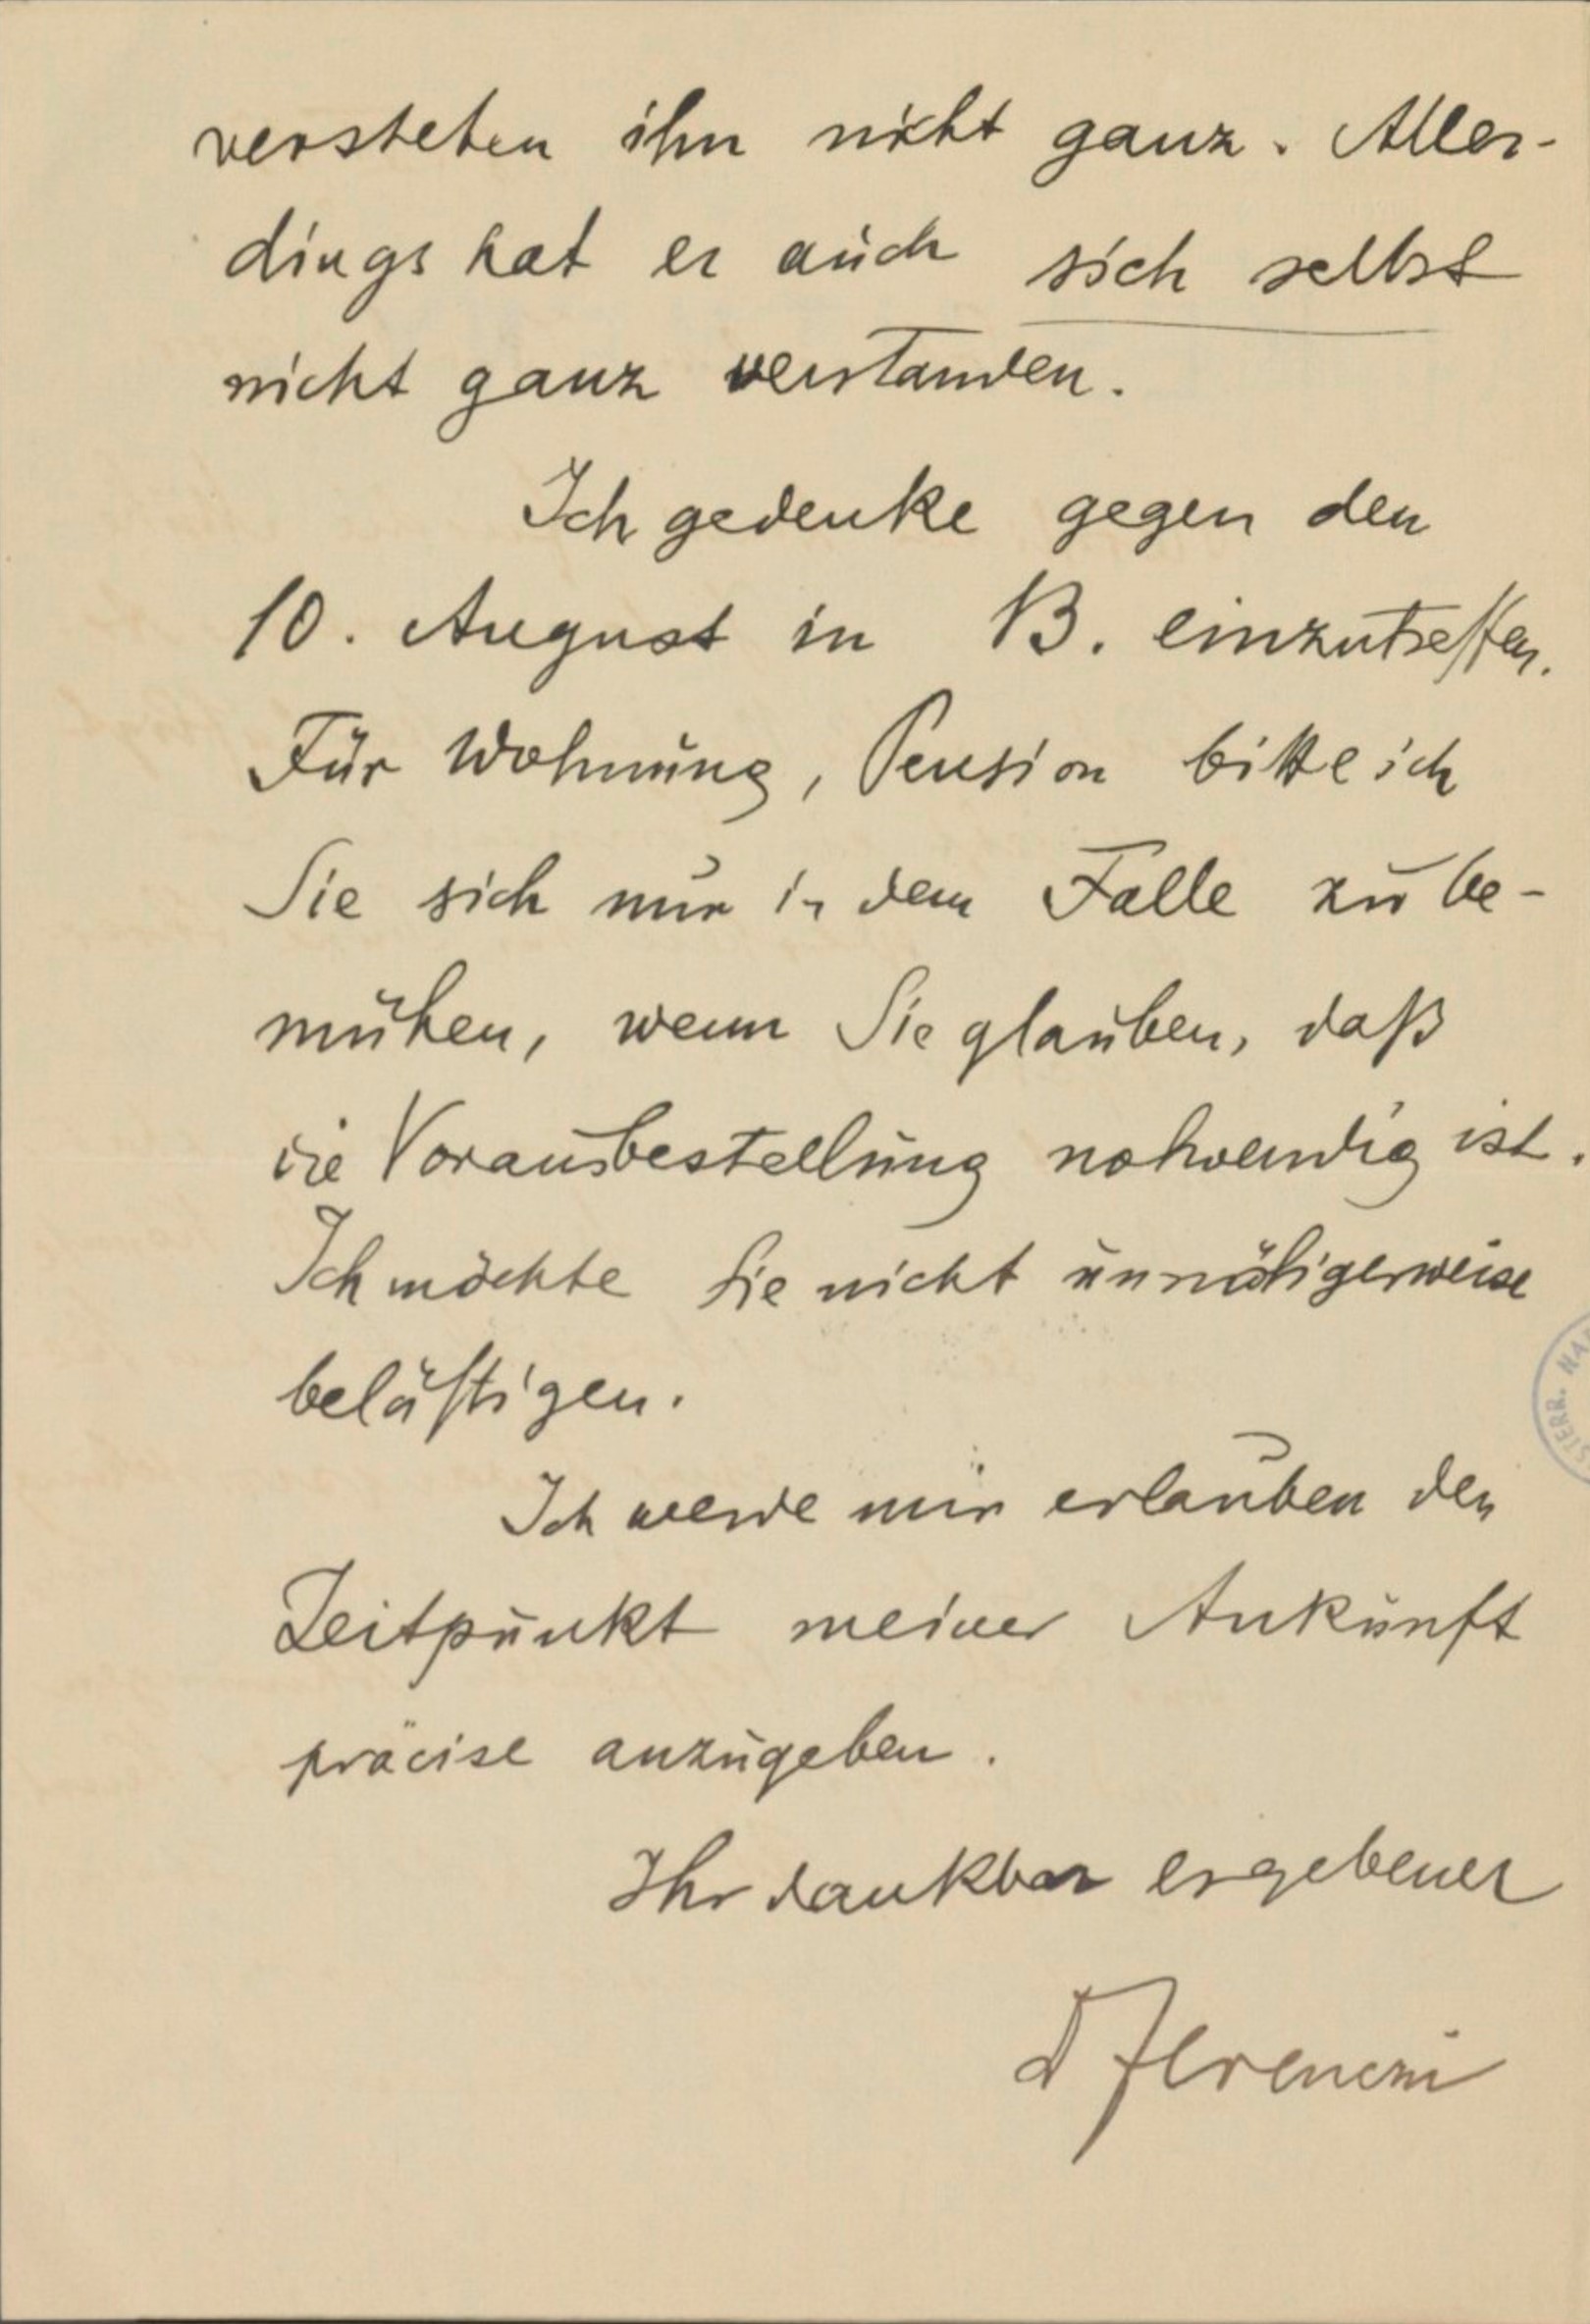 verstehen ihn nicht ganz. Aller-
dings hat er auch sich selbst
nicht ganz verstanden.
Ich gedenke gegen den
10. August in B. einzutreffen.
Für Wohnung, Pension bitte ich
Sie sich nur in dem Falle zu be-
mühen, wenn Sie glauben, daß
die Vorausbestellung nothwendig ist.
Ich möchte Sie nicht unnötigerweise
belästigen.
Ich werde mir erlauben den
Zeitpunkt meiner Ankunft
präcise anzugeben.
Ihr dankbar ergebener
D Ferenczi
STERR. HA